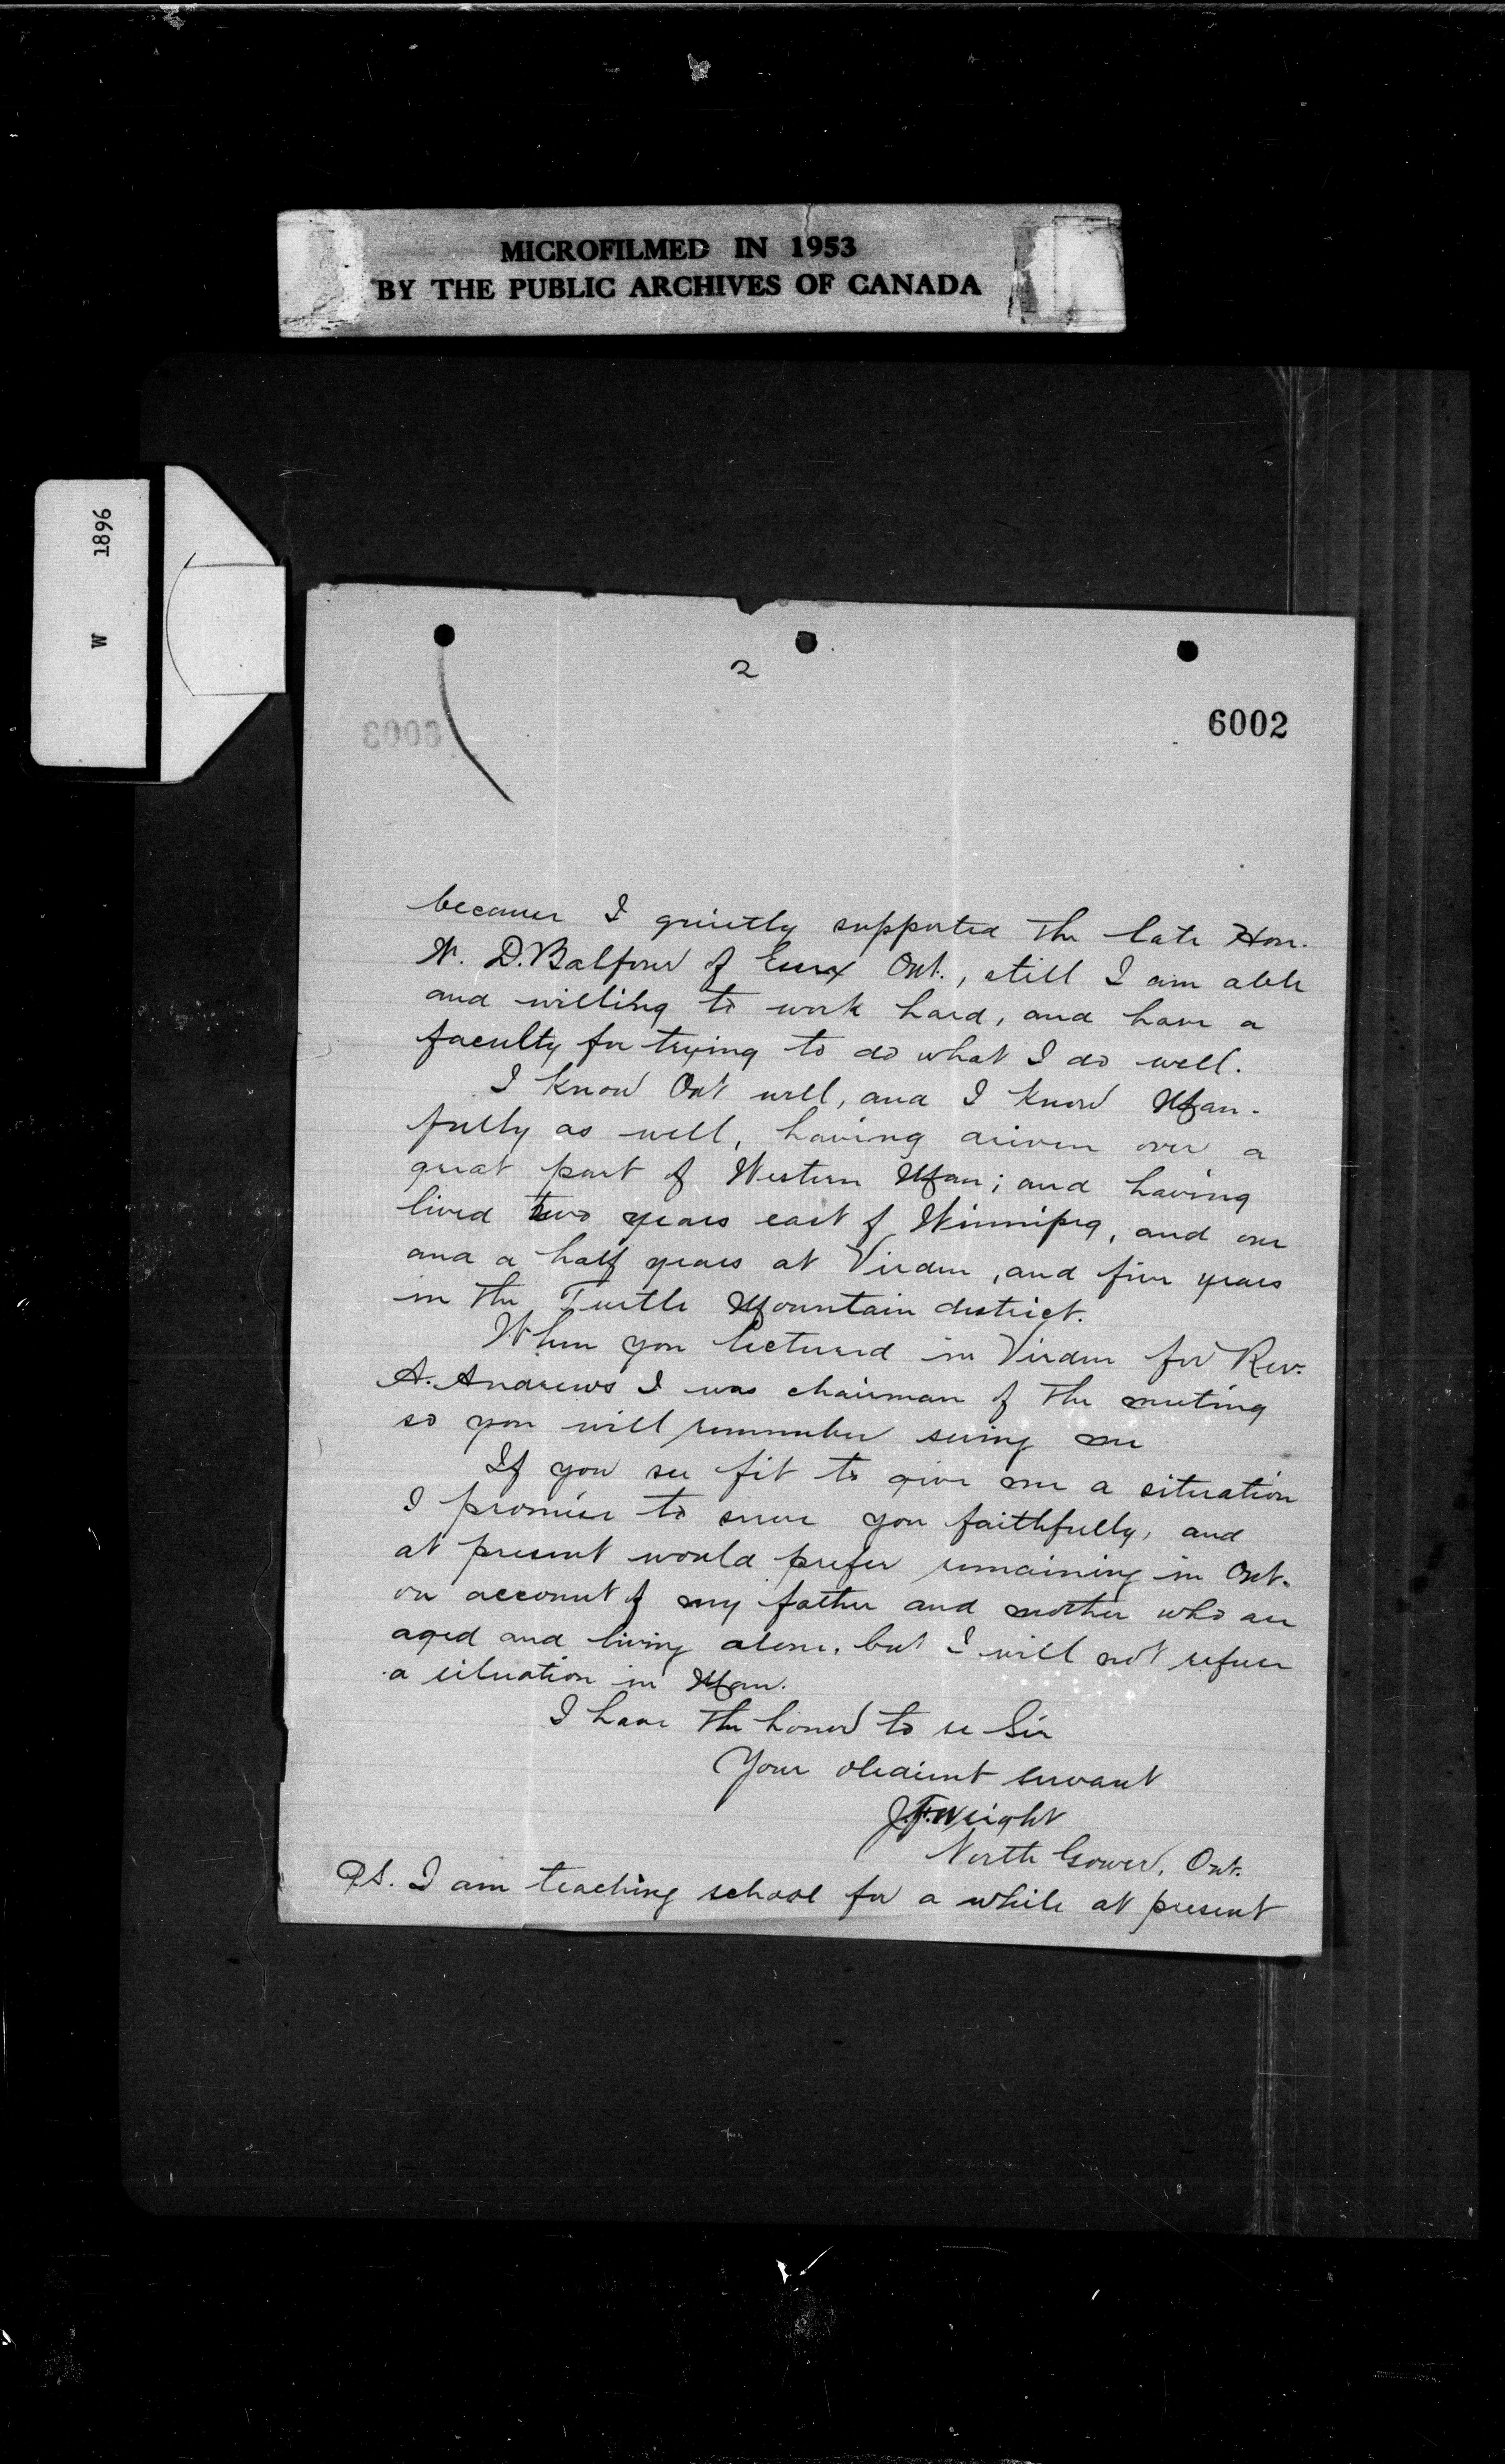 MICROFILMED IN 1953
BY THE PUBLIC ARCHIVES OF CANADA
W 1896
2
6002
6003
because I quietly supported the late Hon.
W. D. Balfour of Essex Ont., still I am able
and willing to work hard, and have a
faculty for trying to do what I do well.
I know Ont well, and I know Man.
fully as well, having driven over a
great part of Western Man; and having
lived two years east of Winnipeg, and one
and a half years at Virden, and five years
in the Turtle Mountain district.
When you lectured in Virden for Rev.
A. Andrews I was chairman of the meeting
so you will remember seeing me
If you see fit to give me a situation
I promise to serve you faithfully, and
at present would prefer remaining in Ont.
on account of my father and mother who are
aged and living alone, but I will not refuse
a situation in Man.
I have the honor to be Sir
Your obedient servant
J.F. Wright
North Gower, Ont.
P.S. I am teaching school for a while at present